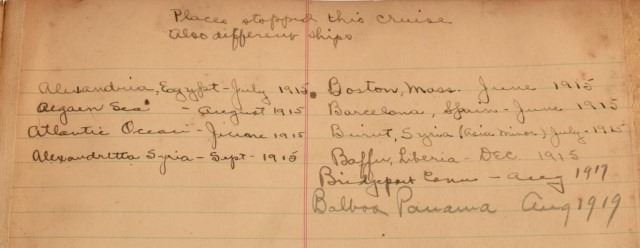 Places stopped this cruise
Also different ships
Alexandria, Egypt - July 1915
Aegaen Sea - August 1915
Atlantic Ocean - June 1915
Alexandretta Syria - Sept - 1915
Boston, Mass. June 1915
Barcelona, Spain - June 1915
Beirut, Syria (Asia Minor) July - 1915
Baffu, Liberia - Dec. 1915
Bridgeport Conn - Aug 1917
Balboa Panama Aug 1919